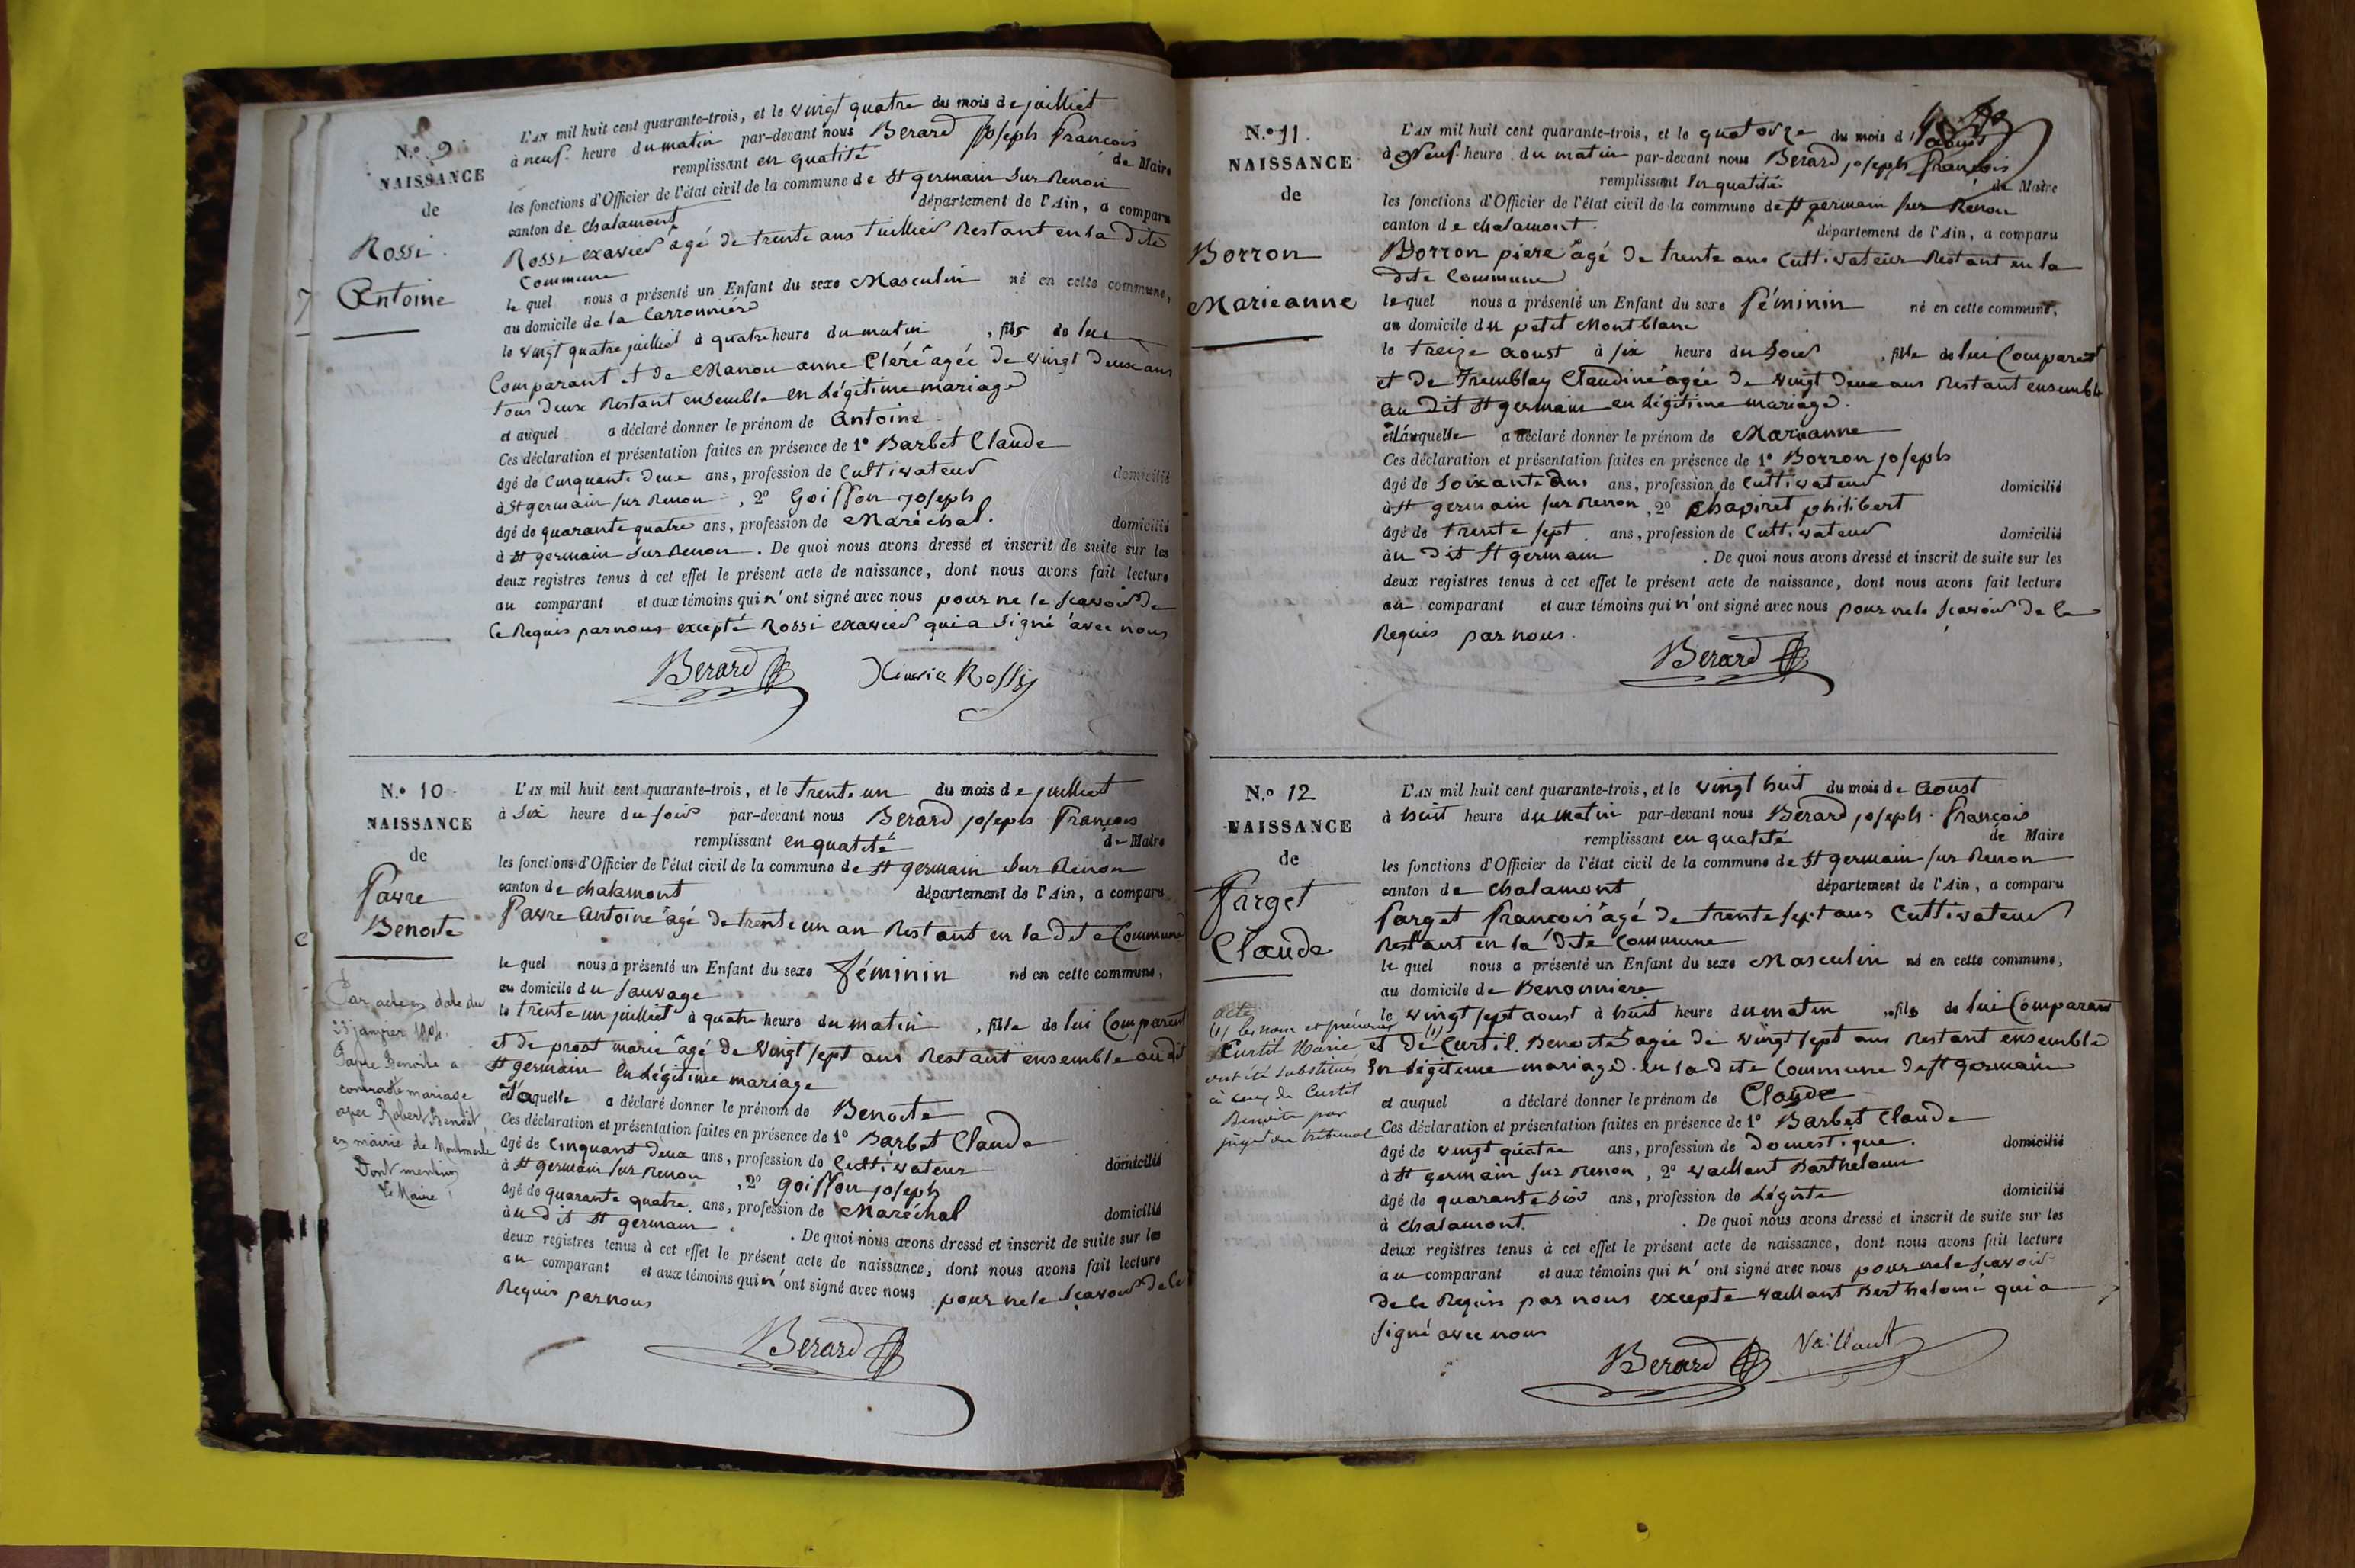 N.º 9
NAISSANCE
de
Rossi
Antoine
L'AN mil huit cent quarante-trois, et le vingt quatre du mois de juilliet
à neuf heure du matin par-devant nous Berard joseph François
remplissant en qualité de Maire
les fonctions d'Officier de l'état civil de la commune de St germain Sur Renon
canton de chalamont département de l'Ain, a comparu
Rossi exavier âgé de trente ans tuillier Restant en la dite
Commune
le quel nous a présenté un Enfant du sexe Masculin né en cette commune,
au domicile de la Carronnière
le vingt quatre juilliet à quatre heure du matin, fils de lui
Comparant et de Manou anne Cléré âgée de vingt Deux ans
tous Deux Restant ensemble en Légitime mariage
et auquel a déclaré donner le prénom de Antoine
Ces déclaration et présentation faites en présence de 1º Barbet Claude
âgé de Cinquante Deux ans, profession de Cultivateur domicilié
à St germain sur Renon, 2º Goiffon joseph
âgé de quarante quatre ans, profession de Maréchal. domicilié
à St germain Sur Renon. De quoi nous avons dressé et inscrit de suite sur les
deux registres tenus à cet effet le présent acte de naissance, dont nous avons fait lecture
au comparant et aux témoins qui n'ont signé avec nous pour ne le scavoir de
ce Requis par nous excepté Rossi exavier qui a signé avec nous
Berard Rossi
N.º 10
NAISSANCE
de
Favre
Benoite
L'AN mil huit cent quarante-trois, et le trente un du mois de juilliet
à Six heure du soir par-devant nous Berard joseph François
remplissant en qualité de Maire
les fonctions d'Officier de l'état civil de la commune de St germain Sur Renon
canton de chalamont département de l'Ain, a comparu
Favre Antoine âgé de trente un an Restant en la dite Commune
le quel nous a présenté un Enfant du sexe féminin né en cette commune,
au domicile du sauvage
le trente un juilliet à quatre heure du matin, fille de lui Comparent
et de prost marie âgé de vingt sept ans Restant ensemble au dit
St germain En Légitime mariage
et à laquelle a déclaré donner le prénom de Benoite
Ces déclaration et présentation faites en présence de 1º Barbet Claude
âgé de Cinquant Deux ans, profession de Cultivateur domicilié
à St germain sur Renon, 2º goiffon joseph
âgé de quarante quatre ans, profession de Maréchal domicilié
au dit St germain. De quoi nous avons dressé et inscrit de suite sur les
deux registres tenus à cet effet le présent acte de naissance, dont nous avons fait lecture
au comparant et aux témoins qui n'ont signé avec nous pour ne le scavoir de ce
Requis par nous
Berard
Par acte en date du
23 janvier
Favre Benoite a
contracté mariage
avec Robert Benoit,
en mairie de Montmerle
Dont mention
Le Maire
N.º 11.
NAISSANCE
de
Borron
Marieanne
L'AN mil huit cent quarante-trois, et le quatorze du mois d'aoust
à Neuf heure du matin par-devant nous Berard joseph François
remplissant En qualité de Maire
les fonctions d'Officier de l'état civil de la commune de St germain sur Renon
canton de chalamont. département de l'Ain, a comparu
Borron piere âgé de trente ans Cultivateur Restant en la
dite Commune
le quel nous a présenté un Enfant du sexe féminin né en cette commune,
au domicile du petit Montblanc
le treize aoust à six heure du Soir, fille de lui Comparent
et de Tremblay Claudine âgée de vingt deux ans Restant ensemble
au dit St germain en Légitime mariage.
et à laquelle a déclaré donner le prénom de Marianne
Ces déclaration et présentation faites en présence de 1º Borron joseph
âgé de Soixante ans, profession de Cultivateur domicilié
à St germain sur Renon, 2º Chapiret philibert
âgé de trente sept ans, profession de Cultivateur domicilié
au dit St germain. De quoi nous avons dressé et inscrit de suite sur les
deux registres tenus à cet effet le présent acte de naissance, dont nous avons fait lecture
au comparant et aux témoins qui n'ont signé avec nous pour ne le scavoir de ce
Requis par nous.
Berard
N.º 12
NAISSANCE
de
Farget
Claude
L'AN mil huit cent quarante-trois, et le vingt huit du mois de Aoust
à huit heure du matin par-devant nous Berard joseph François
remplissant en qualité de Maire
les fonctions d'Officier de l'état civil de la commune de St germain sur Renon
canton de chalamont département de l'Ain, a comparu
farget François âgé de trente sept ans Cultivateur
Restant en la dite Commune
le quel nous a présenté un Enfant du sexe Masculin né en cette commune,
au domicile de Benonniere
le vingt sept aoust à huit heure du matin, fils de lui Comparant
et de (1) Curtil. Benoite âgée de vingt sept ans Restant ensemble
En légitime mariage en la dite Commune de St germain
et auquel a déclaré donner le prénom de Claude
Ces déclaration et présentation faites en présence de 1º Barbet Claude
âgé de vingt quatre ans, profession de Domestique. domicilié
à St germain sur Renon, 2º vaillant Barthelomi
âgé de quarante six ans, profession de Légiste domicilié
à Chalamont. De quoi nous avons dressé et inscrit de suite sur les
deux registres tenus à cet effet le présent acte de naissance, dont nous avons fait lecture
au comparant et aux témoins qui n'ont signé avec nous pour ne le scavoir
de ce Requis par nous excepte vaillant Berthelomi qui a
signé avec nous
Berard Vaillant
(1) les nom et prénoms
Curtil Marie
ont été substitués
à ceux de Curtil
Benoite par
jugt du tribunal